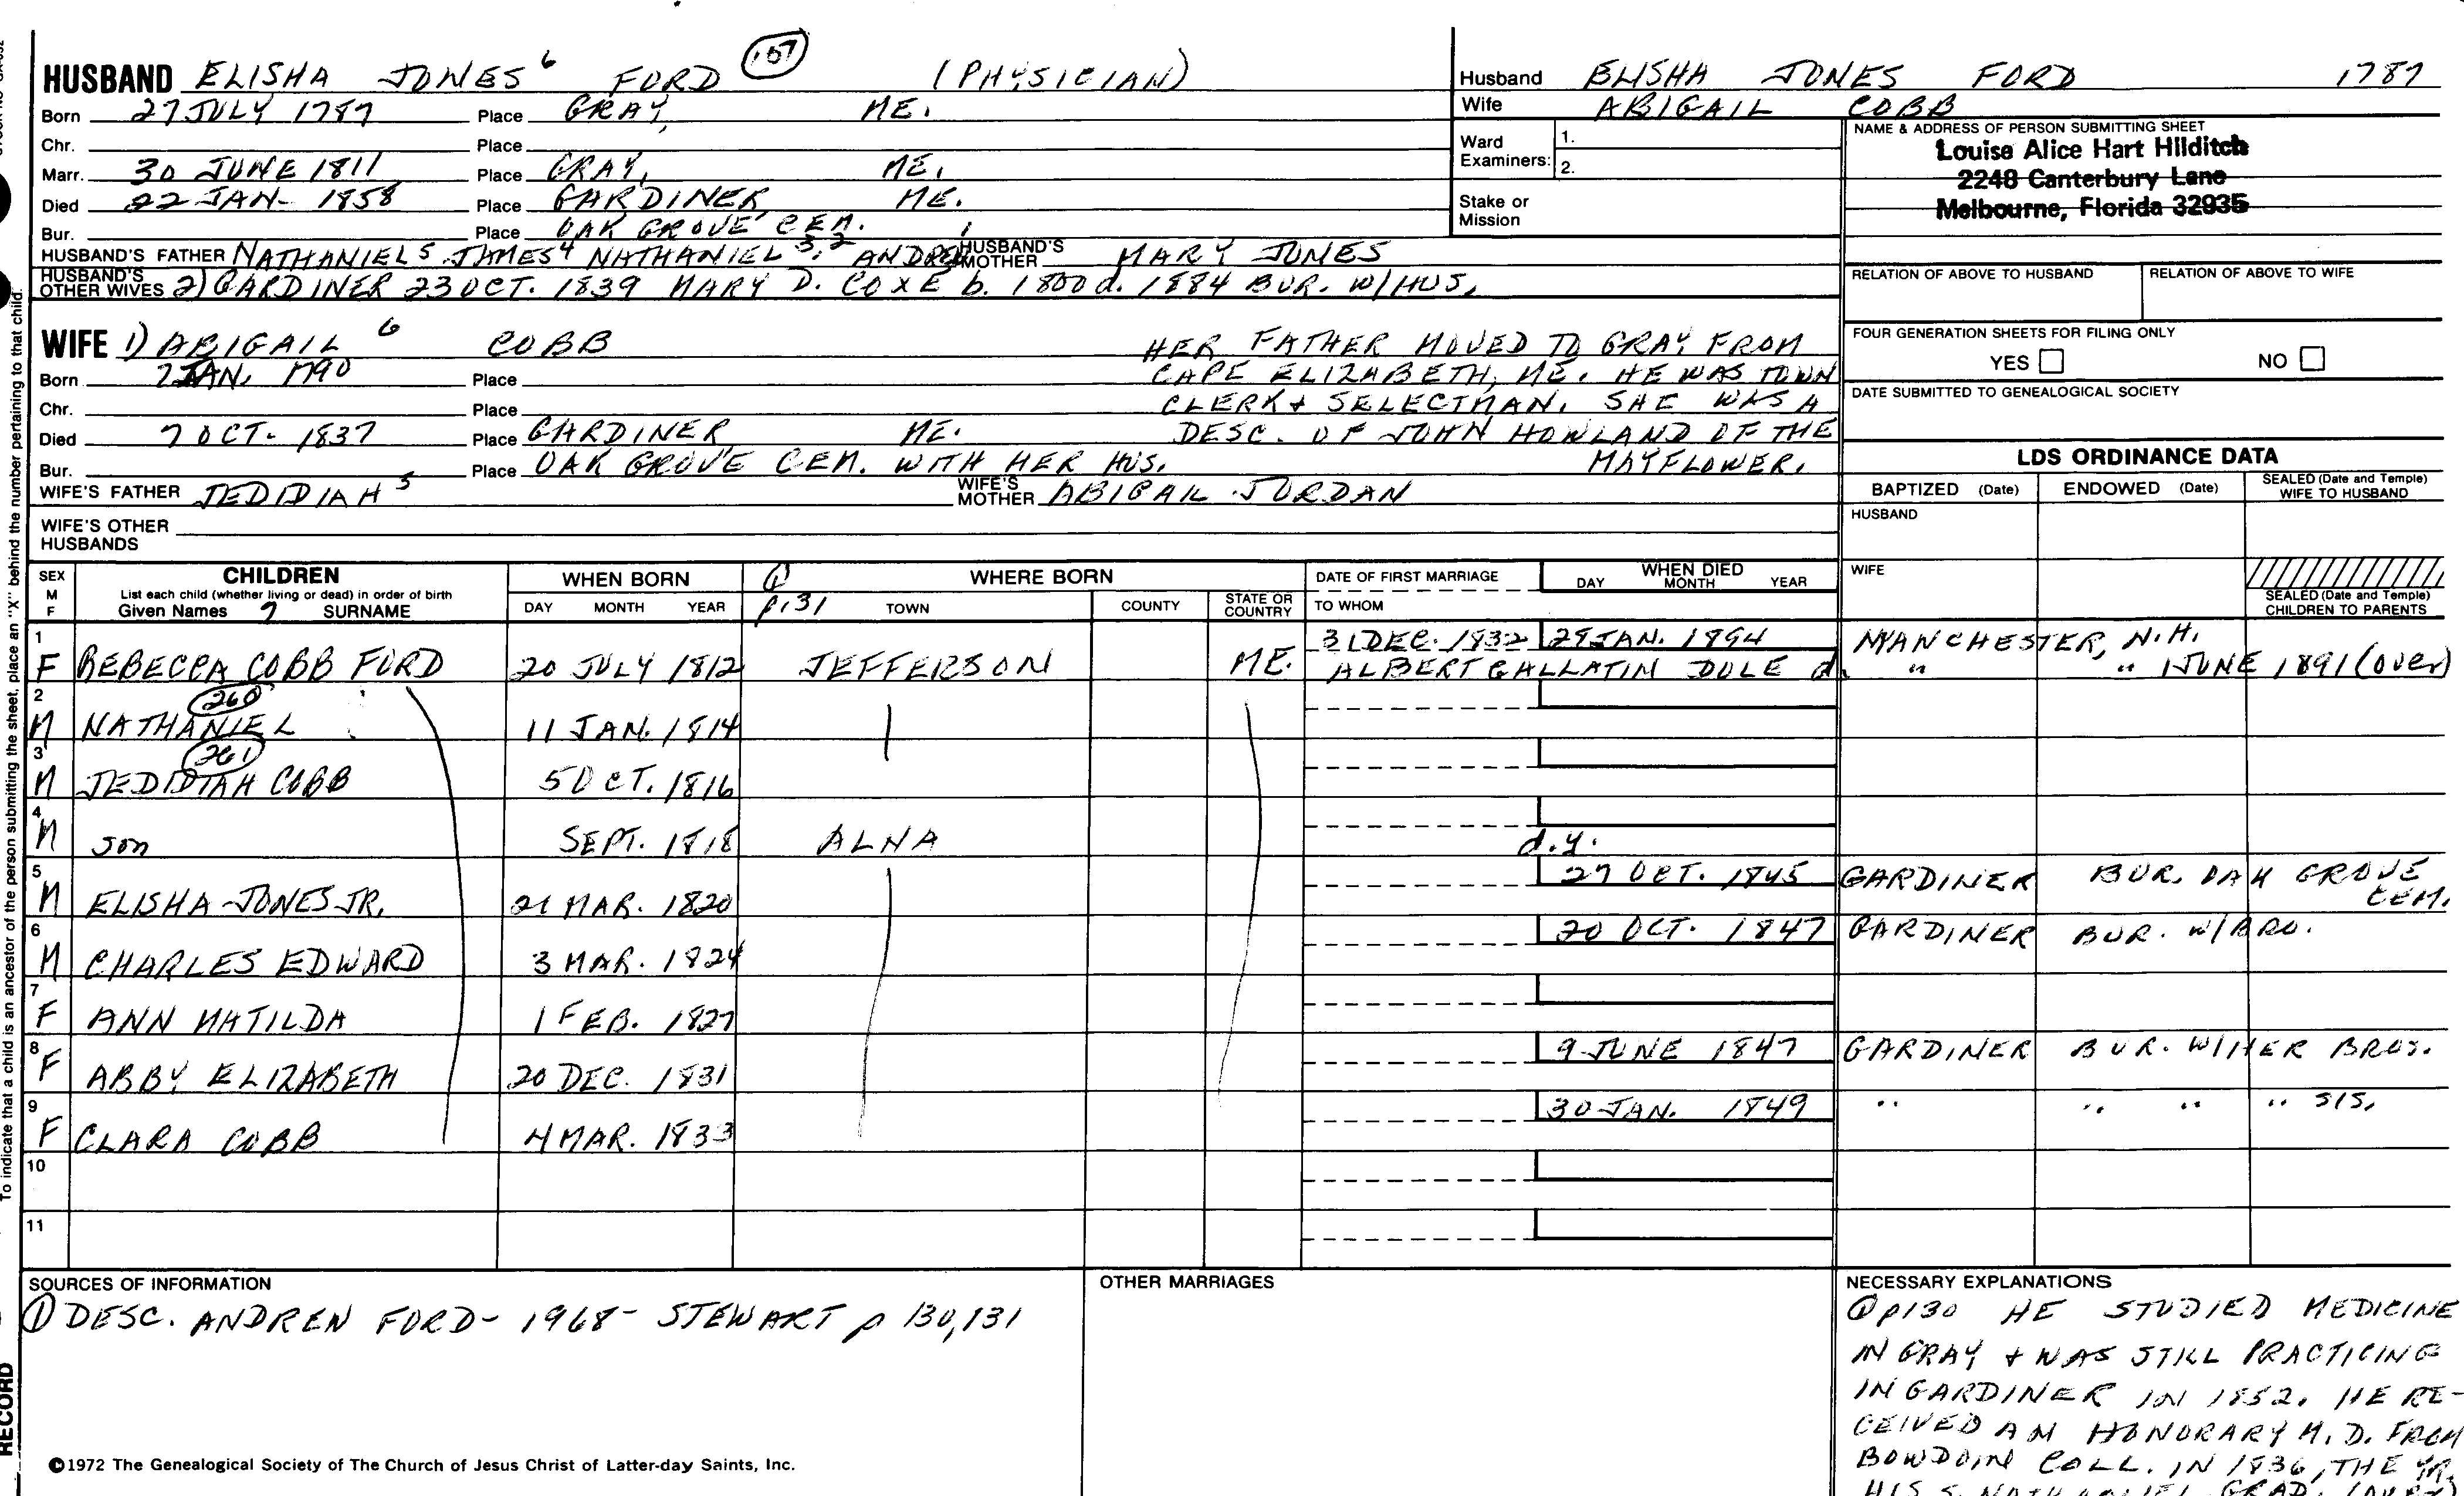 HUSBAND ELISHA JONES 6 FORD 107 (PHYSICIAN)
Born 27 JULY 1787 Place GRAY, ME.
Chr. Place
Marr. 30 JUNE 1811 Place GRAY, ME.
Died 22 JAN- 1858 Place GARDINER ME.
Bur. Place OAK GROVE CEM.
HUSBAND'S FATHER NATHANIEL 5 JAMES 4 NATHANIEL 3, 2 ANDREW HUSBAND'S MOTHER MARY JONES
HUSBAND'S OTHER WIVES 2) GARDINER 23 OCT. 1839 MARY D. COXE b. 1800 d. 1884 BUR. W/HUS.
Husband ELISHA JONES FORD 1787
Wife ABIGAIL COBB
Ward Examiners: 1.
2.
Stake or Mission
NAME & ADDRESS OF PERSON SUBMITTING SHEET
Louise Alice Hart Hilditch
2248 Canterbury Lane
Melbourne, Florida 32935
RELATION OF ABOVE TO HUSBAND RELATION OF ABOVE TO WIFE
FOUR GENERATION SHEETS FOR FILING ONLY
YES NO
DATE SUBMITTED TO GENEALOGICAL SOCIETY
WIFE 1) ABIGAIL 6 COBB
Born 7 JAN. 1790 Place
Chr. Place
Died 7 OCT- 1837 Place GARDINER ME.
Bur. Place OAK GROVE CEM. WITH HER HUS.
WIFE'S FATHER JEDIDIAH 5 WIFE'S MOTHER ABIGAIL JORDAN
WIFE'S OTHER HUSBANDS
HER FATHER MOVED TO GRAY FROM
CAPE ELIZABETH, ME. HE WAS TOWN
CLERK + SELECTMAN. SHE WAS A
DESC. OF JOHN HOWLAND OF THE
MAYFLOWER.
LDS ORDINANCE DATA
BAPTIZED (Date) ENDOWED (Date) SEALED (Date and Temple) WIFE TO HUSBAND
HUSBAND
WIFE
SEALED (Date and Temple) CHILDREN TO PARENTS
SEX M F CHILDREN List each child (whether living or dead) in order of birth Given Names 7 SURNAME
WHEN BORN DAY MONTH YEAR
① p.131 WHERE BORN TOWN COUNTY STATE OR COUNTRY
DATE OF FIRST MARRIAGE TO WHOM
WHEN DIED DAY MONTH YEAR
1 31 DEC. 1832 29 JAN. 1894 MANCHESTER, N.H.
F REBECCA COBB FORD 20 JULY 1812 JEFFERSON ME. ALBERT GALLATIN DOLE d. " " 1 JUNE 1891 (over)
2 260
M NATHANIEL 11 JAN. 1814
3 261
M JEDIDIAH COBB 5 OCT. 1816
4
M son SEPT. 1818 ALNA d.y.
5 27 OCT. 1845 GARDINER BUR. OAK GROVE CEM.
M ELISHA JONES JR. 21 MAR. 1820
6 20 OCT. 1847 GARDINER BUR. W/BRO.
M CHARLES EDWARD 3 MAR. 1824
7
F ANN MATILDA 1 FEB. 1827
8 9 JUNE 1847 GARDINER BUR. W/HER BROS.
F ABBY ELIZABETH 20 DEC. 1831
9 30 JAN. 1849 " " " " SIS.
F CLARA COBB 4 MAR. 1833
10
11
SOURCES OF INFORMATION
① DESC. ANDREW FORD - 1968 - STEWART p 130,131
OTHER MARRIAGES
NECESSARY EXPLANATIONS
① p130 HE STUDIED MEDICINE
IN GRAY + WAS STILL PRACTICING
IN GARDINER IN 1852. HE RE-
CEIVED AN HONORARY M.D. FROM
BOWDOIN COLL. IN 1836, THE YR.
HIS S. NATHANIEL GRAD. (OVER)
©1972 The Genealogical Society of The Church of Jesus Christ of Latter-day Saints, Inc.
To indicate that a child is an ancestor of the person submitting the sheet, place an "X" behind the number pertaining to that child.
RECORD